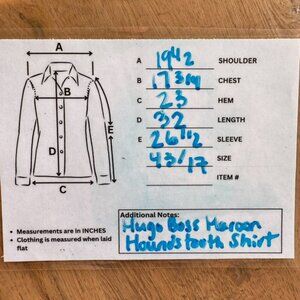 A
B
E
D
C
A 19 1/2 SHOULDER
B 17 3/4 CHEST
C 23 HEM
D 32 LENGTH
E 26 1/2 SLEEVE
43/17 SIZE
ITEM #
• Measurements are in INCHES
• Clothing is measured when laid
flat
Additional Notes:
Hugo Boss Maroon
Houndstooth Shirt